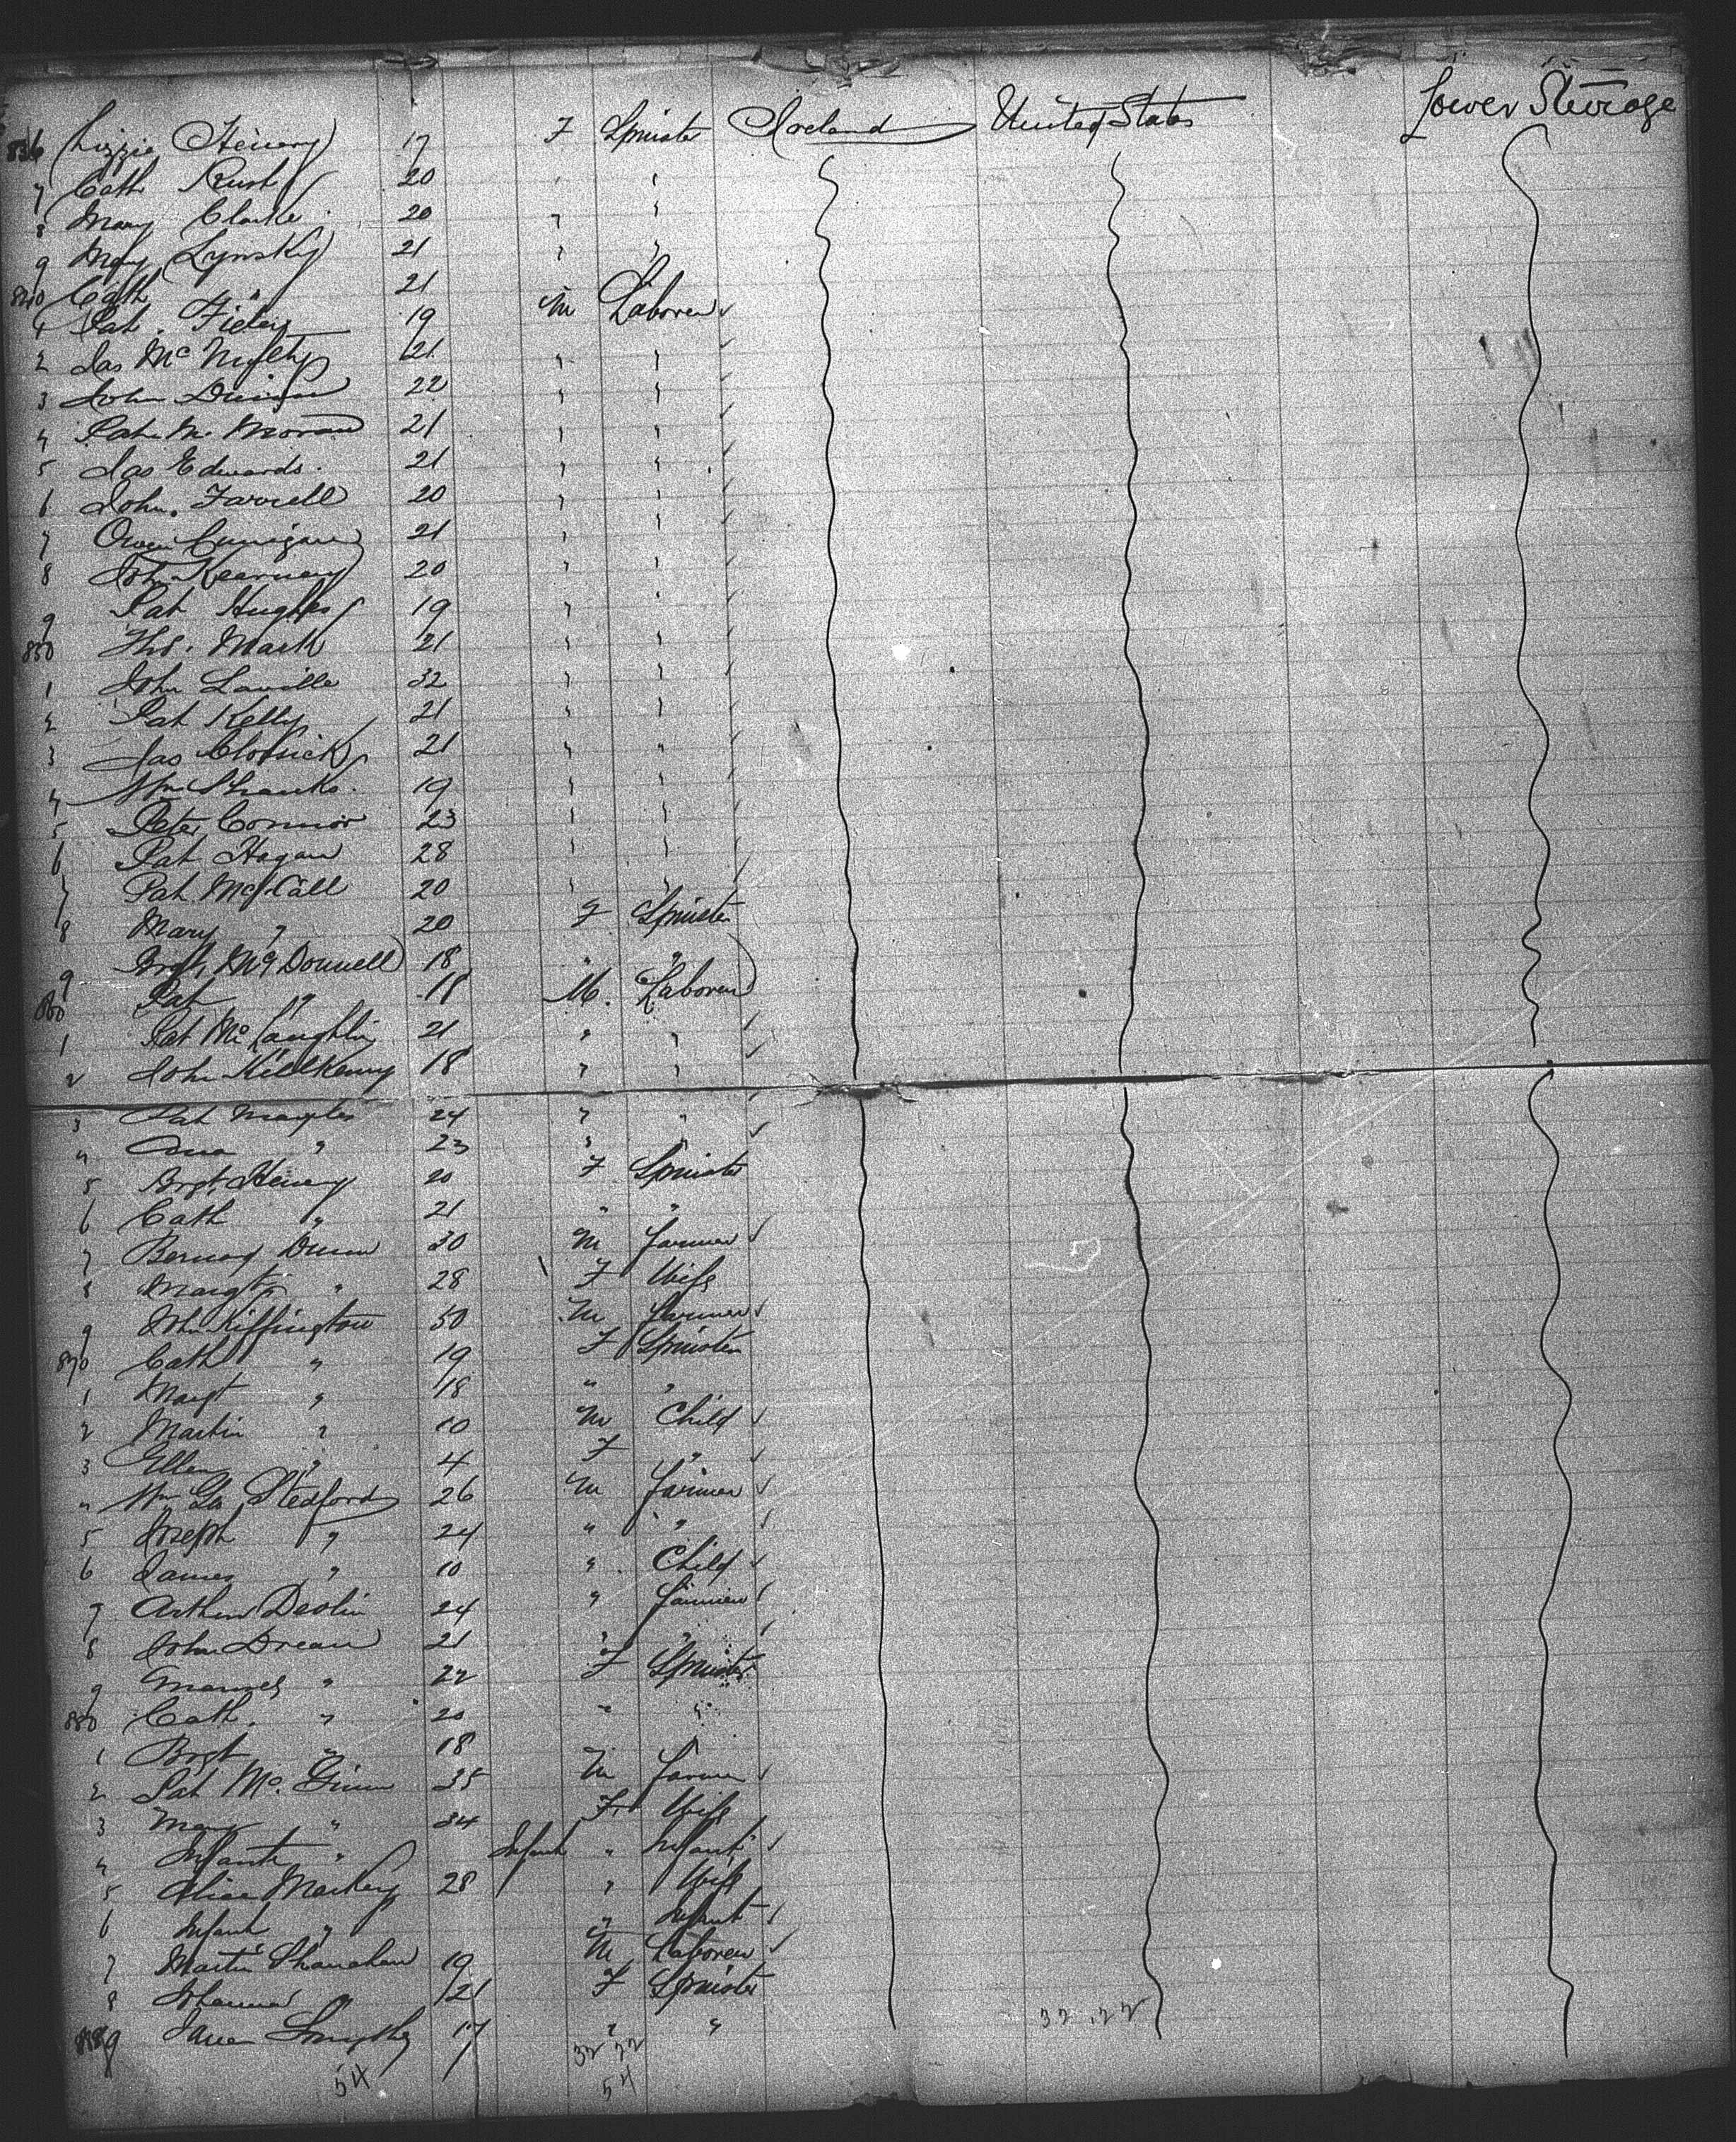 Lower Steerage
836 Lizzie Henery 17 F Spinster Ireland United States
7 Cath Rush 20 " "
8 Mary Clarke 20 " "
9 Mary Lynsky 21 " "
840 Cath " 21
1 Pat. 19 M Laborer
2 Jas McNulty 21 " "
3 John 22 " "
4 Pat M. Moran 21 " "
5 Jas Edwards 21 " "
6 John Farrell 20 " "
7 Owen 21 " "
8 John Kearney 20 " "
9 Pat Hughes 19 " "
850 Ths. Mack 21 " "
1 John Laville 32 " "
2 Pat Kelly 21 " "
3 Jas 21 " "
4 Wm Shanks 19 " "
5 Peter Connor 23 " "
6 Pat Hagan 28 " "
7 Pat McCall 20 " "
8 Mary " 20 F Spinster
9 Brgt McDonnell 18 " "
860 Pat " 18 M. Laborer
1 Pat McLaughlin 21 " "
2 John Killkenny 18 " "
3 Pat 24 " "
4 " 23 " "
5 Brgt Henery 20 F Spinster
6 Cath " 21 " "
7 Bernard Dunn 30 M Farmer
8 Margt " 28 F Wife
9 John Kiffington 50 M Farmer
870 Cath " 19 F Spinster
1 Margt " 18 " "
2 Martin " 10 M Child
3 Ellen " 4 F "
4 Wm Stedford 26 M Farmer
5 Joseph " 24 " "
6 James " 10 " Child
7 Arthur Devlin 24 " Farmer
8 John Drean 21 " "
9 " 22 F Spinster
880 Cath. " 20 " "
1 Brgt " 18
2 Pat McGinn 35 M Farmer
3 Mary " 34 F Wife
4 Infant " Infant " Infant
5 Alice Markey 28 " Wife
6 Infant " " Infant
7 Martin Shanahan 19 M Laborer
8 Johanna " 21 F Spinster
889 Smythe 17 " "
32 22
32 22
54
54